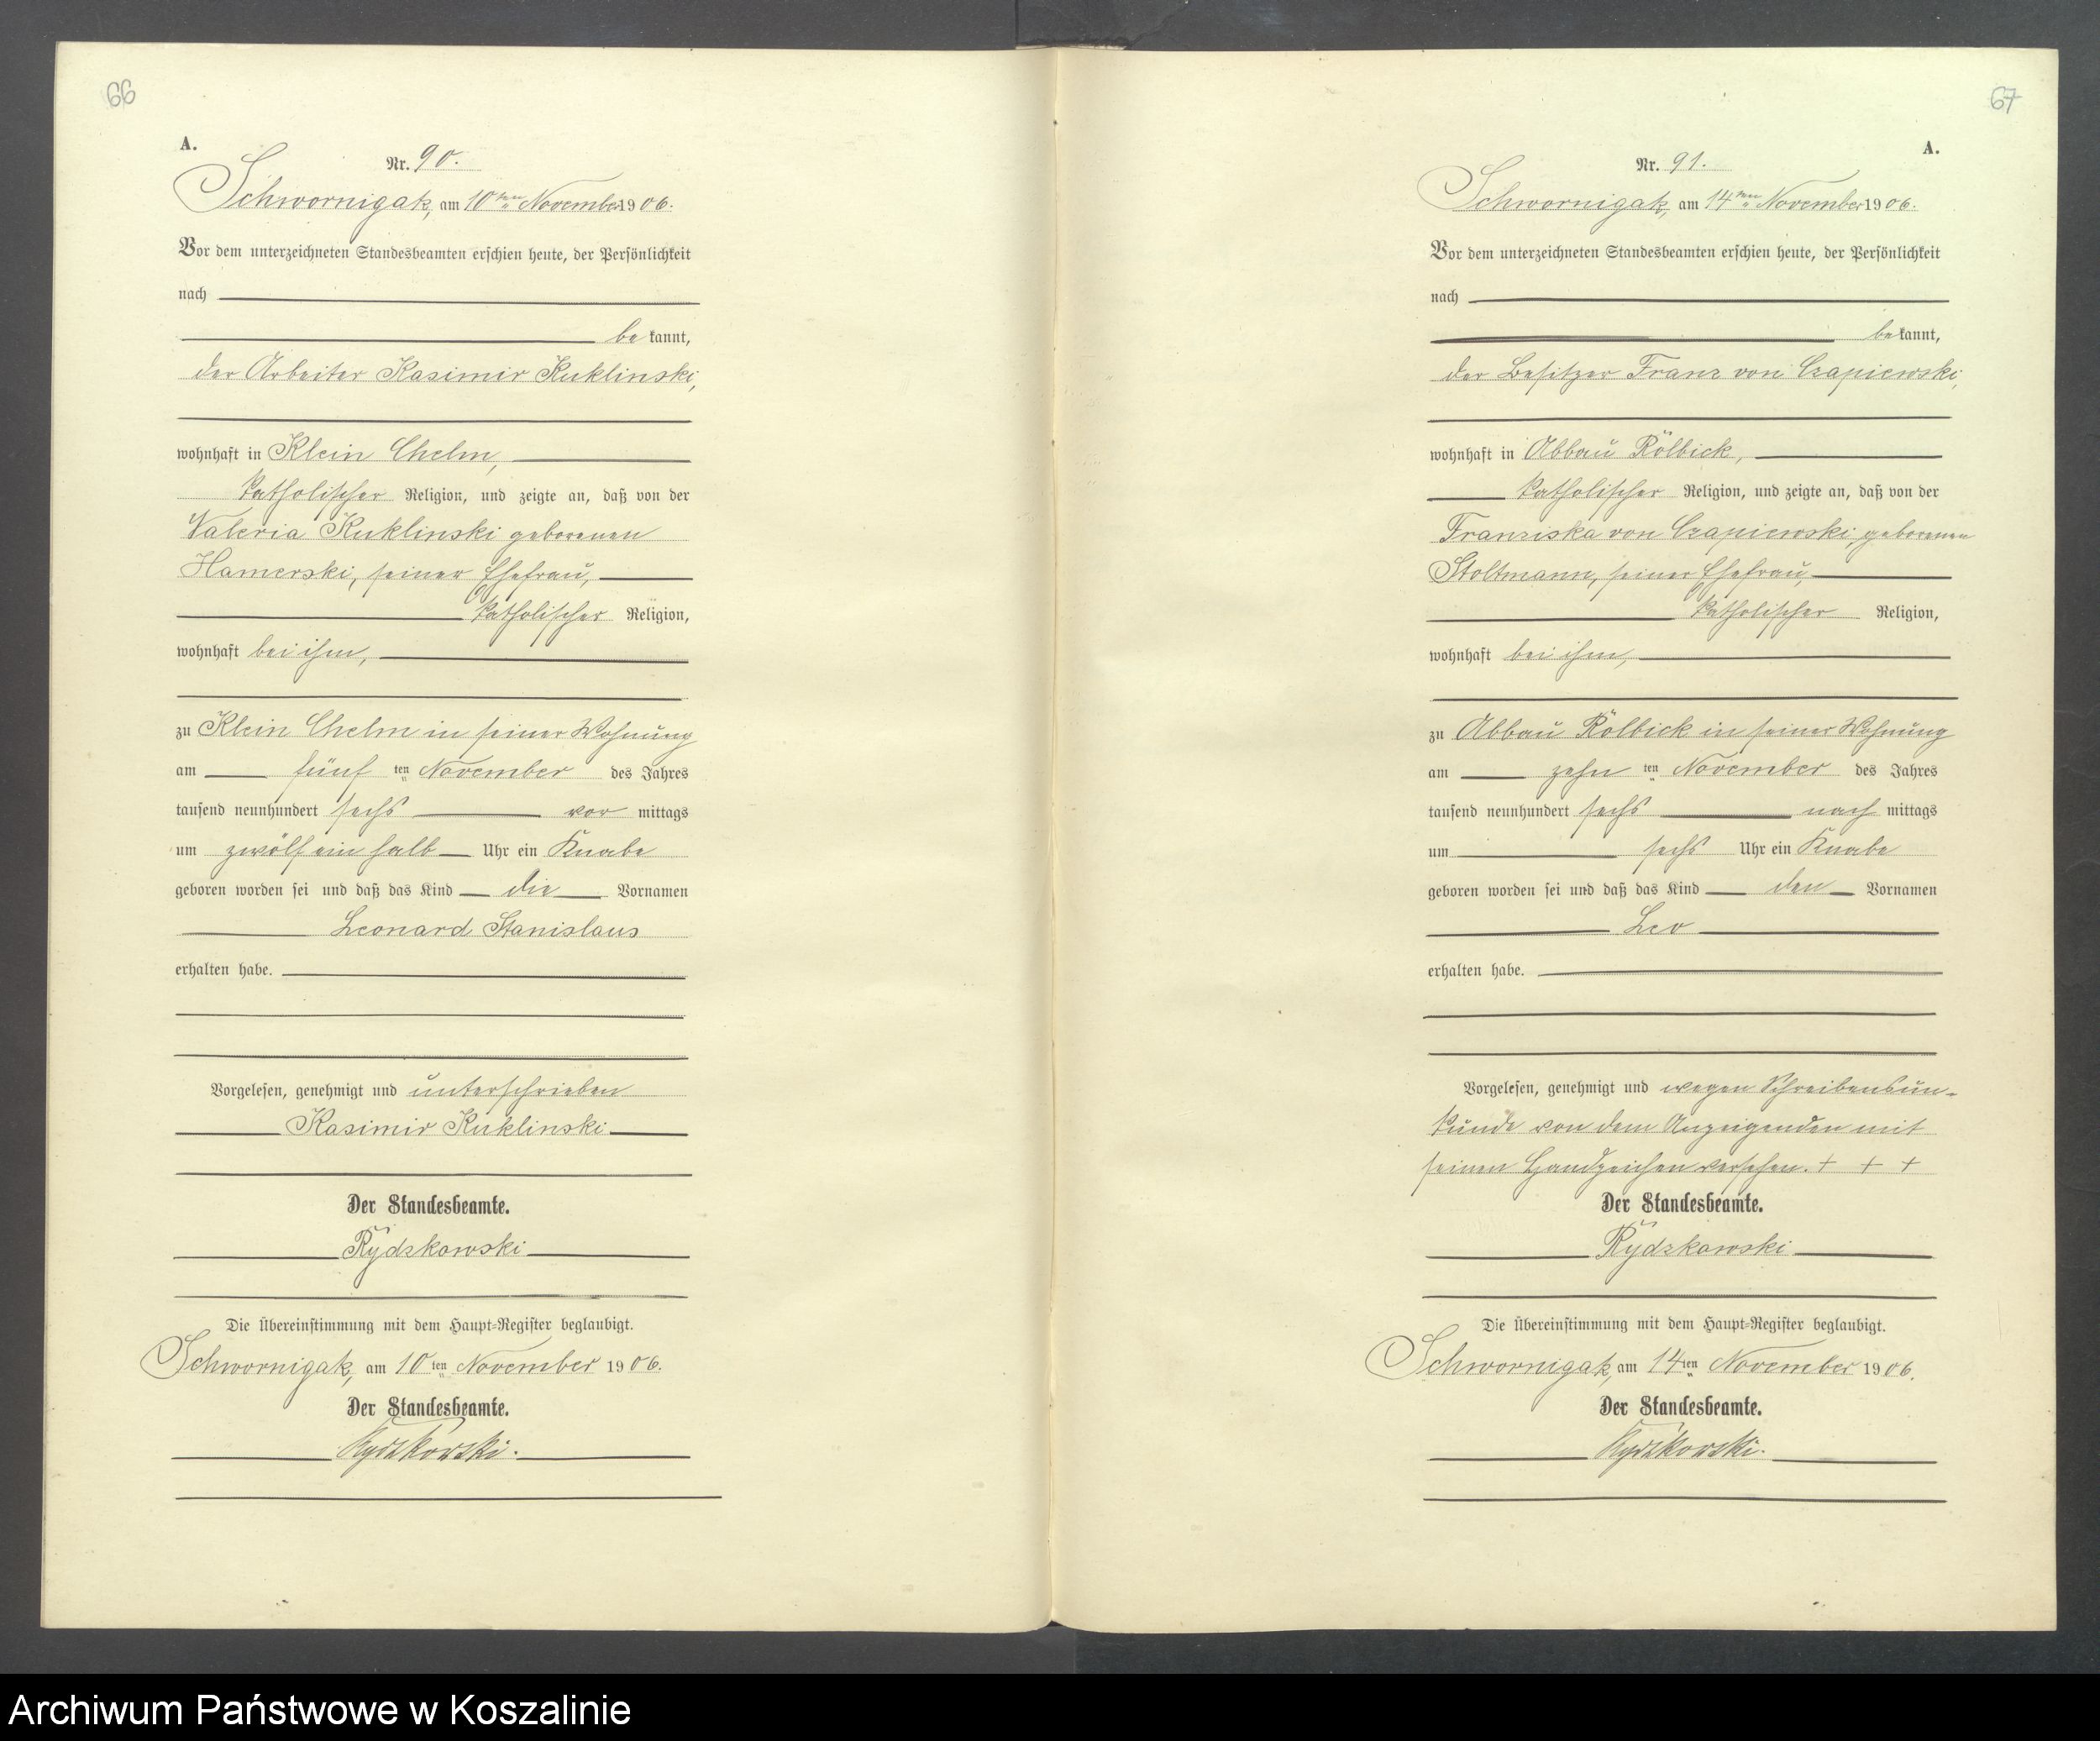 66
A.
Nr. 90.
Schwornigatz, am 10ten November 1906.
Vor dem unterzeichneten Standesbeamten erschien heute, der Persönlichkeit
nach
bekannt,
der Arbeiter Kasimir Kuklinski,
wohnhaft in Klein Chelm,
katholischer Religion, und zeigte an, daß von der
Valeria Kuklinski geborenen
Hamerski, seiner Ehefrau,
katholischer Religion,
wohnhaft bei ihm,
zu Klein Chelm in seiner Wohnung
am fünf ten November des Jahres
tausend neunhundert sechs vor mittags
um zwölf ein halb Uhr ein Knabe
geboren worden sei und daß das Kind die Vornamen
Leonard Stanislaus
erhalten habe.
Vorgelesen, genehmigt und unterschrieben
Kasimir Kuklinski
Der Standesbeamte.
Rydzkowski
Die Übereinstimmung mit dem Haupt-Register beglaubigt.
Schwornigatz, am 10ten November 1906.
Der Standesbeamte.
Rydzkowski.
67
A.
Nr. 91.
Schwornigatz, am 14ten November 1906.
Vor dem unterzeichneten Standesbeamten erschien heute, der Persönlichkeit
nach
bekannt,
der Besitzer Franz von Czapiewski,
wohnhaft in Abbau Rölbick,
katholischer Religion, und zeigte an, daß von der
Franziska von Czapiewski, geborenen
Stoltmann, seiner Ehefrau,
katholischer Religion,
wohnhaft bei ihm,
zu Abbau Rölbick in seiner Wohnung
am zehn ten November des Jahres
tausend neunhundert sechs nach mittags
um sechs Uhr ein Knabe
geboren worden sei und daß das Kind den Vornamen
Leo
erhalten habe.
Vorgelesen, genehmigt und wegen Schreibensun-
kunde von dem Anzeigenden mit
seinen Handzeichen versehen. + + +
Der Standesbeamte.
Rydzkowski
Die Übereinstimmung mit dem Haupt-Register beglaubigt.
Schwornigatz, am 14ten November 1906.
Der Standesbeamte.
Rydzkowski.
Archiwum Państwowe w Koszalinie